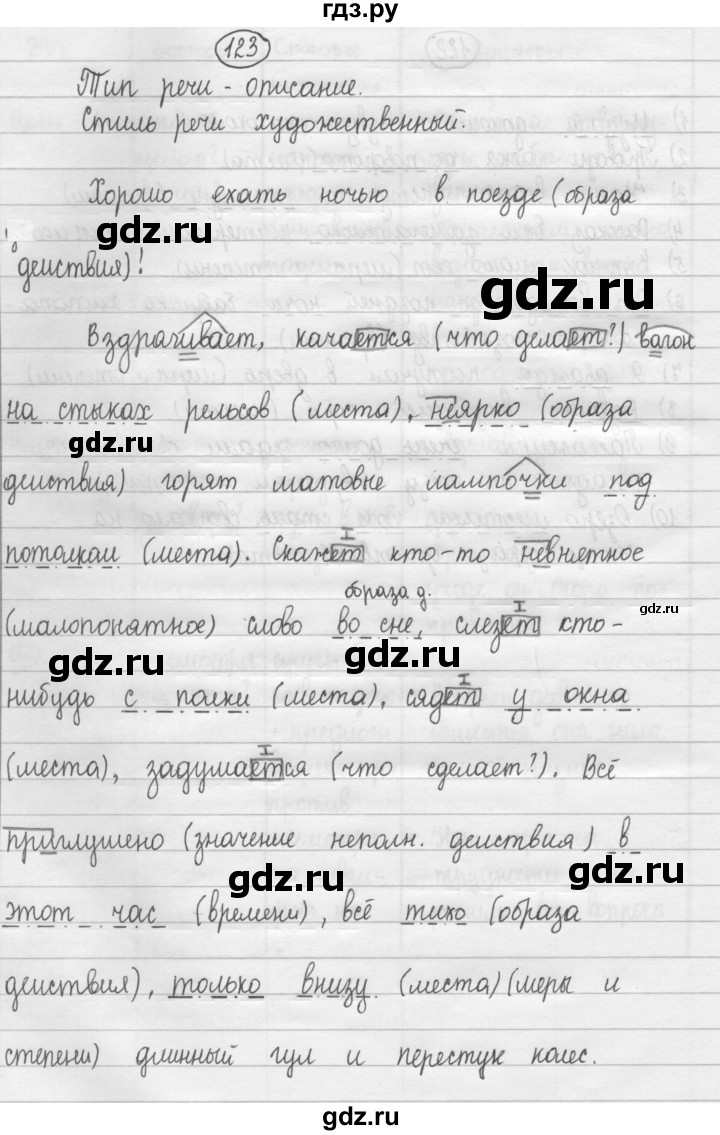 гдз.ру
123
Тип речи - описание.
Стиль речи художественный.
Хорошо ехать ночью в поезде (образа
gdz.ru
действия)!
gdz.ru
Вздрагивает, качается (что делает?) вагон
на стыках рельсов (места), неярко (образа
gdz.ru
gdz.ru
действия) горят матовые лампочки под
I
потолками (места). Скажет кто-то невнятное
образа д.
I
gdz.ru
(малопонятное) слово во сне, слезет кто-
gdz.ru
gdz.ru
I
нибудь с полки (места), сядет у окна
I
(места), задумается (что сделает?). Всё
приглушено (значение неполн. действия) в
gdz.ru
gdz.ru
этот час (времени), всё тихо (образа
действия), только внизу (места) (меры и
степени) длинный гул и перестук колес.
gdz.ru